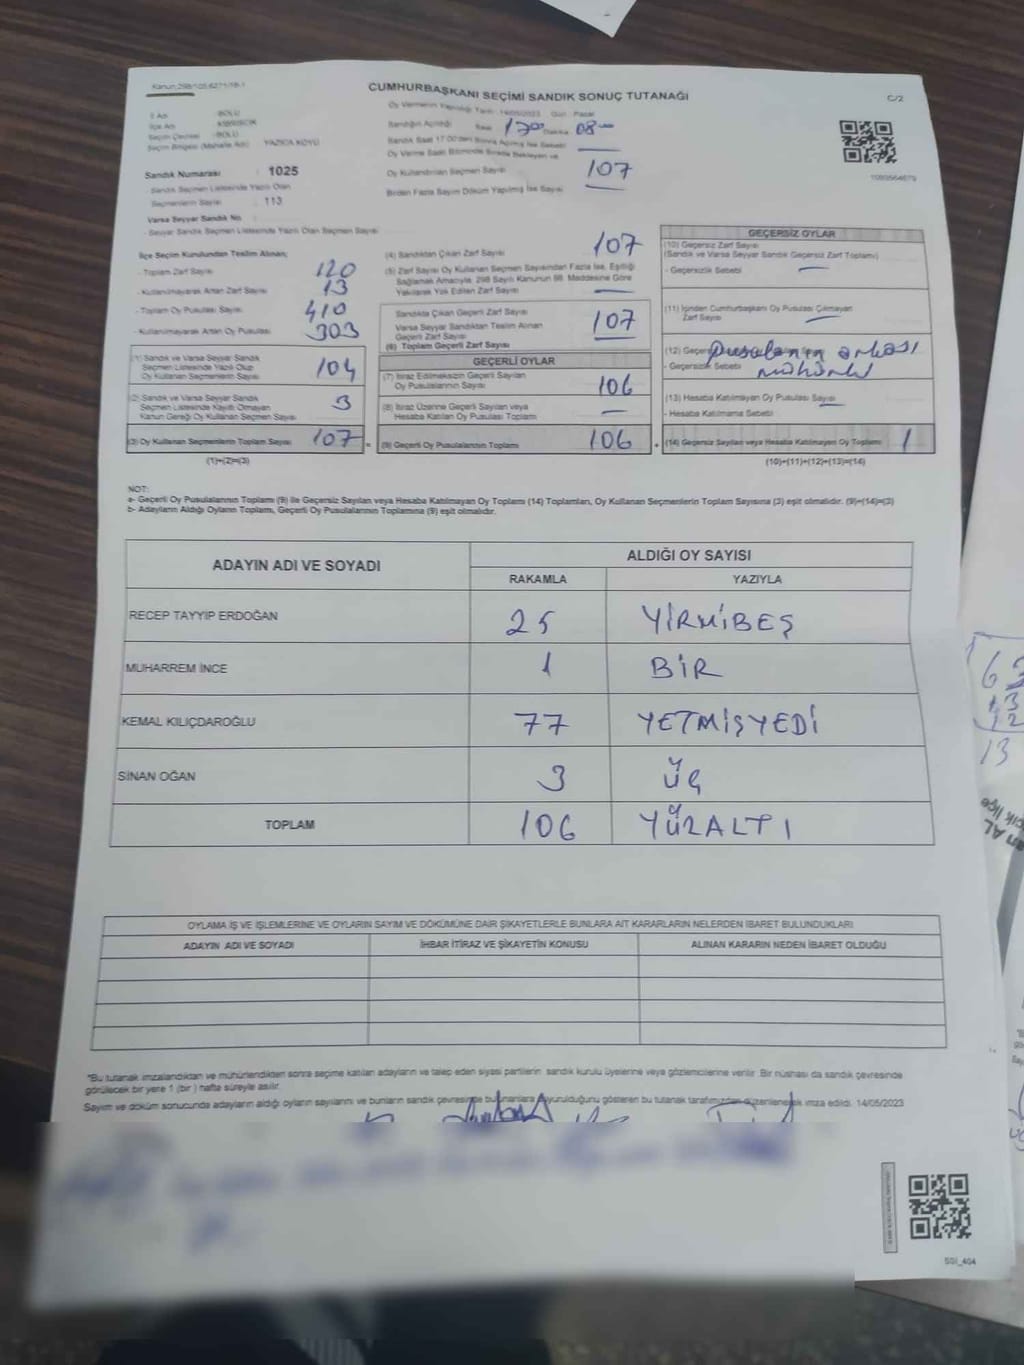 Kanun:298/105,6271/18-1
CUMHURBAŞKANI SEÇİMİ SANDIK SONUÇ TUTANAĞI
C/2
İl Adı : BOLU
İlçe Adı
Seçim Çevresi : BOLU
Seçim Bölgesi (Mahalle Adı) : YAZICA KÖYÜ
Sandık Numarası : 1025
- Sandık Seçmen Listesinde Yazılı Olan
Seçmenlerin Sayısı : 113
Varsa Seyyar Sandık No
- Seyyar Sandık Seçmen Listesinde Yazılı Olan Seçmen Sayısı
Oy Vermenin Yapıldığı Tarih : 14/05/2023 Gün : Pazar
Sandığın Açıldığı Saat 17 Dakika 08
Sandık Saat 17.00'den Sonra Açılmış İse Sebebi
Oy Verme Saati Bitiminde Sırada Bekleyen ve
Oy Kullandırılan Seçmen Sayısı 107
Birden Fazla Sayım Döküm Yapılmış İse Sayısı
İlçe Seçim Kurulundan Teslim Alınan;
- Toplam Zarf Sayısı 120
- Kullanılmayarak Artan Zarf Sayısı 13
- Toplam Oy Pusulası Sayısı 410
- Kullanılmayarak Artan Oy Pusulası 303
(1) Sandık ve Varsa Seyyar Sandık
Seçmen Listesinde Yazılı Olup
Oy Kullanan Seçmenlerin Sayısı 104
(2) Sandık ve Varsa Seyyar Sandık
Seçmen Listesinde Kayıtlı Olmayan
Kanun Gereği Oy Kullanan Seçmen Sayısı 3
(3) Oy Kullanan Seçmenlerin Toplam Sayısı 107 =
(1)+(2)=(3)
(4) Sandıktan Çıkan Zarf Sayısı 107
(5) Zarf Sayısı Oy Kullanan Seçmen Sayısından Fazla İse, Eşitliği
Sağlamak Amacıyla, 298 Sayılı Kanunun 98. Maddesine Göre
Yakılarak Yok Edilen Zarf Sayısı
Sandıkta Çıkan Geçerli Zarf Sayısı
Varsa Seyyar Sandıktan Teslim Alınan
Geçerli Zarf Sayısı 107
(6) Toplam Geçerli Zarf Sayısı
GEÇERLİ OYLAR
(7) İtiraz Edilmeksizin Geçerli Sayılan
Oy Pusulalarının Sayısı 106
(8) İtiraz Üzerine Geçerli Sayılan veya
Hesaba Katılan Oy Pusulası Toplamı
(9) Geçerli Oy Pusulalarının Toplamı 106 +
GEÇERSİZ OYLAR
(10) Geçersiz Zarf Sayısı
(Sandık ve Varsa Seyyar Sandık Geçersiz Zarf Toplamı)
- Geçersizlik Sebebi
(11) İçinden Cumhurbaşkanı Oy Pusulası Çıkmayan
Zarf Sayısı
(12) pusulanın arkası
- Geçersizlik Sebebi mühürlü
(13) Hesaba Katılmayan Oy Pusulası Sayısı
- Hesaba Katılmama Sebebi
(14) Geçersiz Sayılan veya Hesaba Katılmayan Oy Toplamı 1
(10)+(11)+(12)+(13)=(14)
NOT:
a- Geçerli Oy Pusulalarının Toplamı (9) ile Geçersiz Sayılan veya Hesaba Katılmayan Oy Toplamı (14) Toplamları, Oy Kullanan Seçmenlerin Toplam Sayısına (3) eşit olmalıdır. (9)+(14)=(3)
b- Adayların Aldığı Oyların Toplamı, Geçerli Oy Pusulalarının Toplamına (9) eşit olmalıdır.
ADAYIN ADI VE SOYADI
ALDIĞI OY SAYISI
RAKAMLA YAZIYLA
RECEP TAYYİP ERDOĞAN 25 YİRMİBEŞ
MUHARREM İNCE 1 BİR
KEMAL KILIÇDAROĞLU 77 YETMİŞYEDİ
SİNAN OĞAN 3 ÜÇ
TOPLAM 106 YÜZALTI
OYLAMA İŞ VE İŞLEMLERİNE VE OYLARIN SAYIM VE DÖKÜMÜNE DAİR ŞİKAYETLERLE BUNLARA AİT KARARLARIN NELERDEN İBARET BULUNDUKLARI
ADAYIN ADI VE SOYADI İHBAR İTİRAZ VE ŞİKAYETİN KONUSU ALINAN KARARIN NEDEN İBARET OLDUĞU
"Bu tutanak imzalandıktan ve mühürlendikten sonra seçime katılan adayların ve talep eden siyasi partilerin sandık kurulu üyelerine veya gözlemcilerine verilir. Bir nüshası da sandık çevresinde
görülecek bir yere 1 (bir) hafta süreyle asılır.
Sayım ve döküm sonucunda adayların aldığı oyların sayılarını ve bunların sandık çevresinde bulunanlara duyurulduğunu gösteren bu tutanak tarafımızdan düzenlenerek imza edildi. 14/05/2023
SSI_404
13